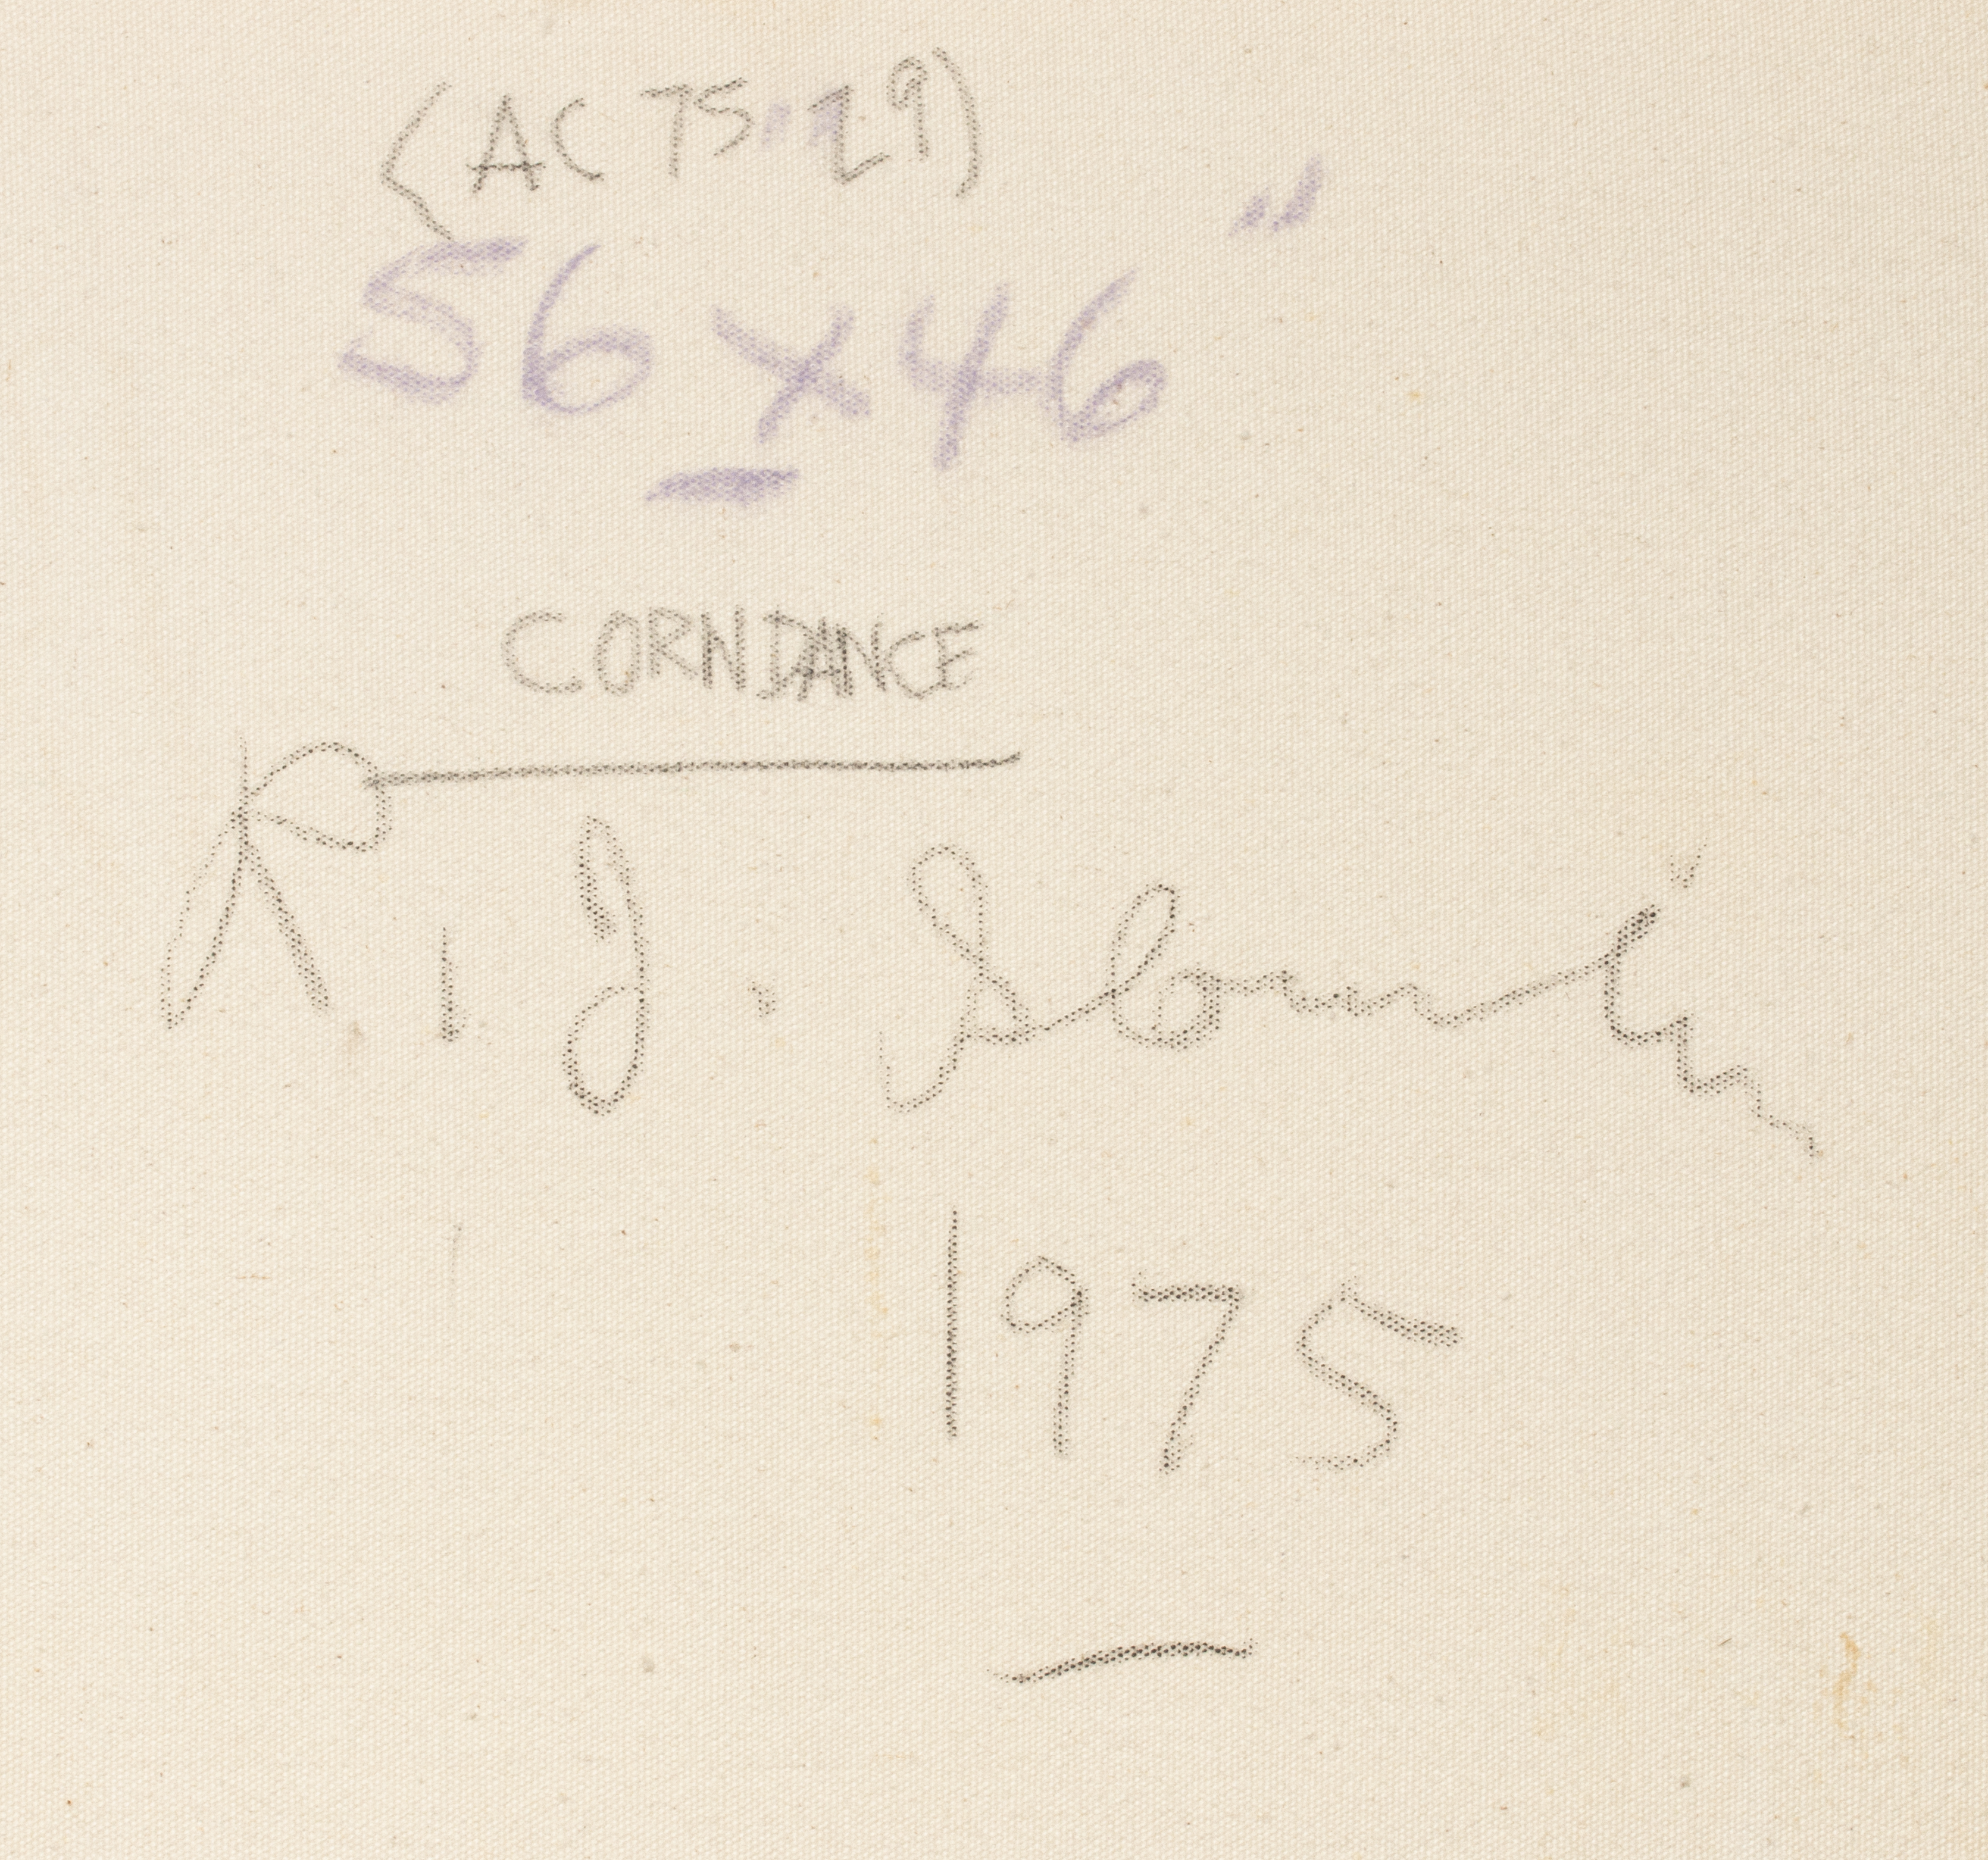 (AC 75 29)
56" x 46"
CORN DANCE
R. J. Slomin
1975